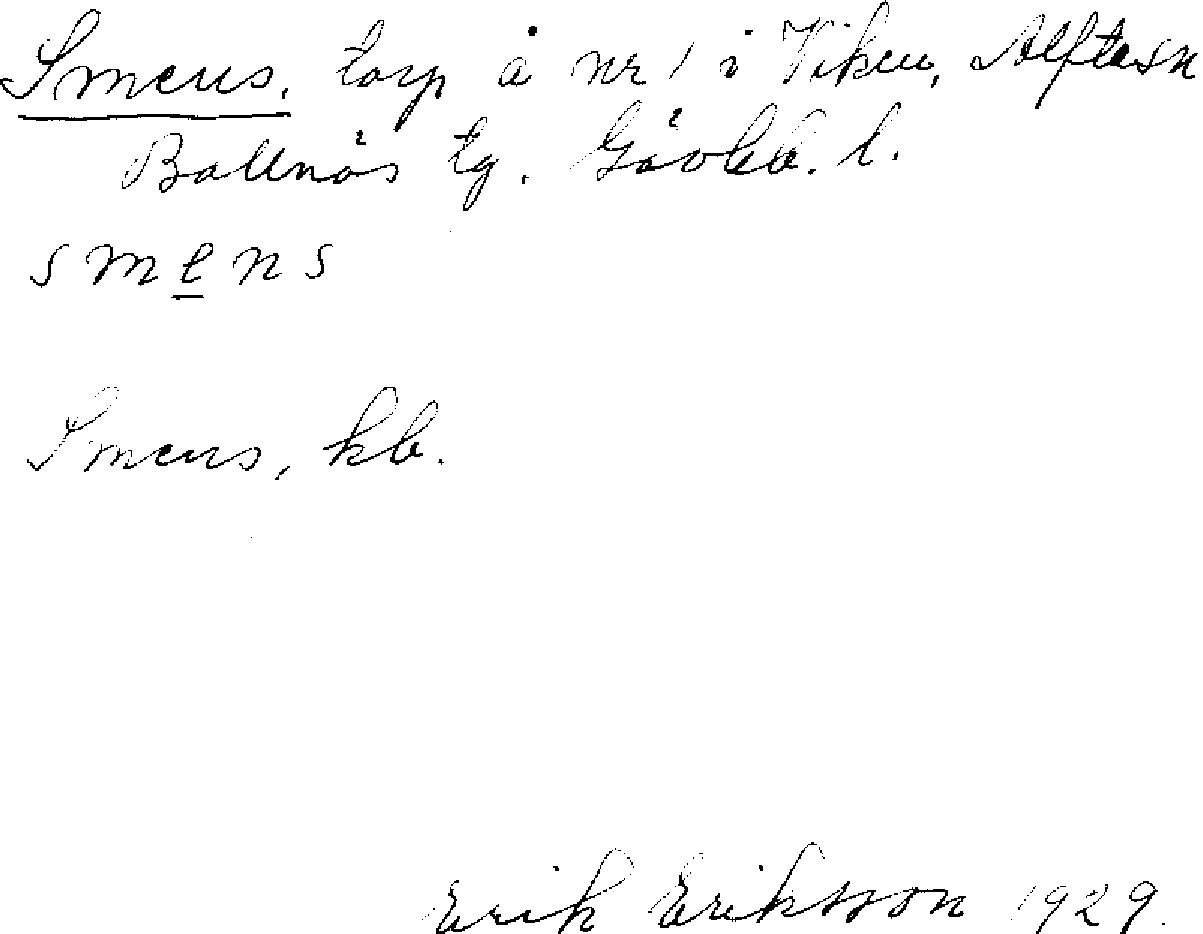 Smens, torp å nr 1 i Viken, Alfta sn
Bollnäs tg. Gävleb. l.
s m e n s
Smens, kb.
Erik Eriksson 1929.